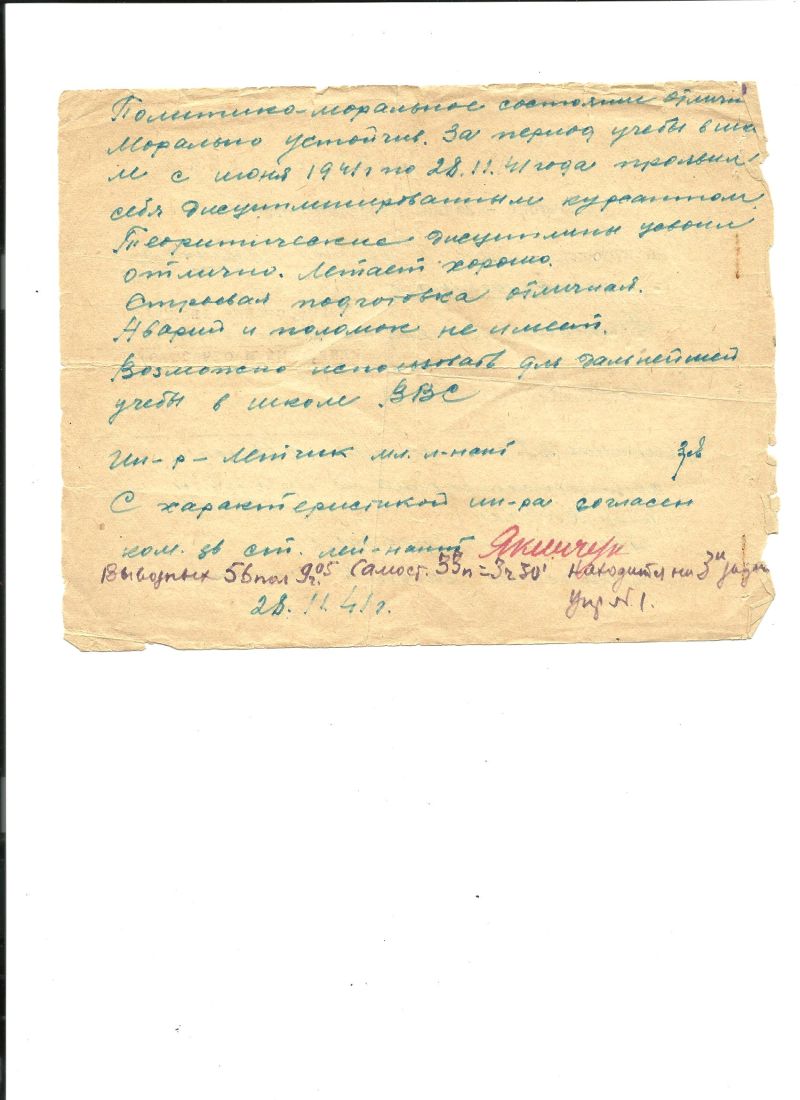 Политико-моральное состояние отличн
Морально устойчив. За период учебы в шко
М с июня 1941г по 28.11.41 года проявил
себя дисциплинированным курсантом.
Теоритические дисциплины усвоил
отлично. Летает хорошо.
Строевая подготовка отличная.
Аварий и поломок не имеет.
Возможно использовать для дальнейшей
учебы в школе ВВС
Ин-р-летчик мл. л-нант
С характеристикой ин-ра согласен
ком. зв ст. лей-нант
Вывозных 56 пол 9ч.05 Самост. 33п=3ч50' находится на 3й задач
28.11.41г. Упр №1.